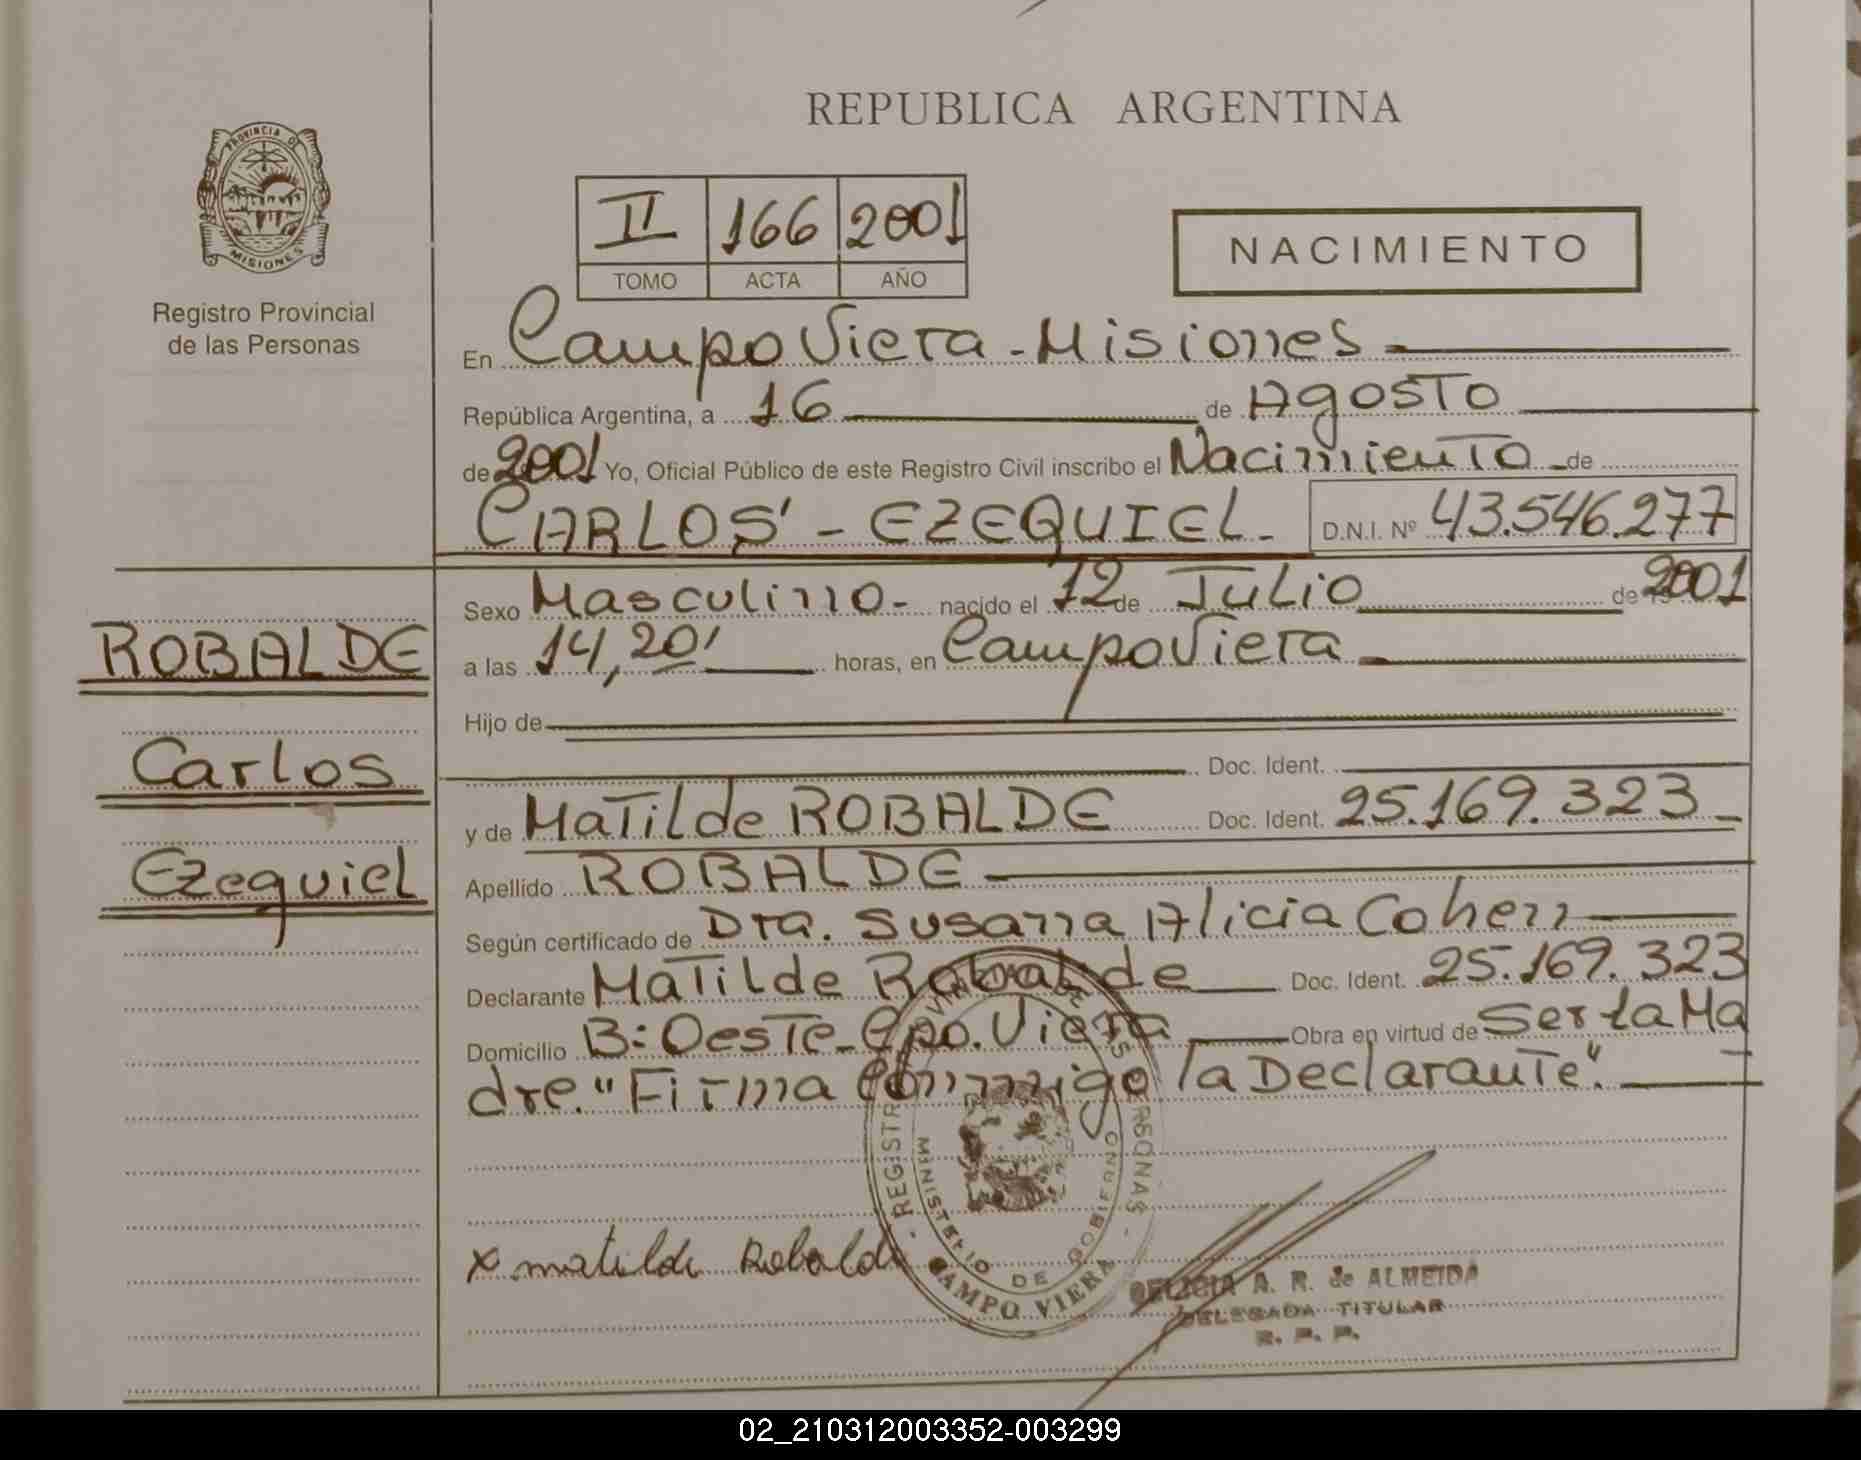 REPUBLICA ARGENTINA
PROVINCIA DE
MISIONES
Registro Provincial
de las Personas
II 166 2001
TOMO ACTA AÑO
NACIMIENTO
En Campo Viera - Misiones
República Argentina, a 16 de Agosto
de 2001 Yo, Oficial Público de este Registro Civil inscribo el Nacimiento de
CARLOS - EZEQUIEL - D.N.I. Nº 43.546.277
Sexo Masculino - nacido el 12 de Julio de 2001
a las 14,20' horas, en Campo Viera
Hijo de
Doc. Ident.
y de Matilde ROBALDE Doc. Ident. 25.169.323
Apellido ROBALDE
Según certificado de Dra. Susana Alicia Cohen
Declarante Matilde Robalde Doc. Ident. 25.169.323
Domicilio B: Oeste - Cpo. Viera Obra en virtud de Ser la Ma
dre. "Firma Conmigo la Declarante".
ROBALDE
Carlos
Ezequiel
x matilde Robalde
MINISTERIO DE GOBIERNO
CAMPO VIERA
DELICIA A. R. de ALMEIDA
DELEGADA TITULAR
R. P. P.
02_210312003352-003299